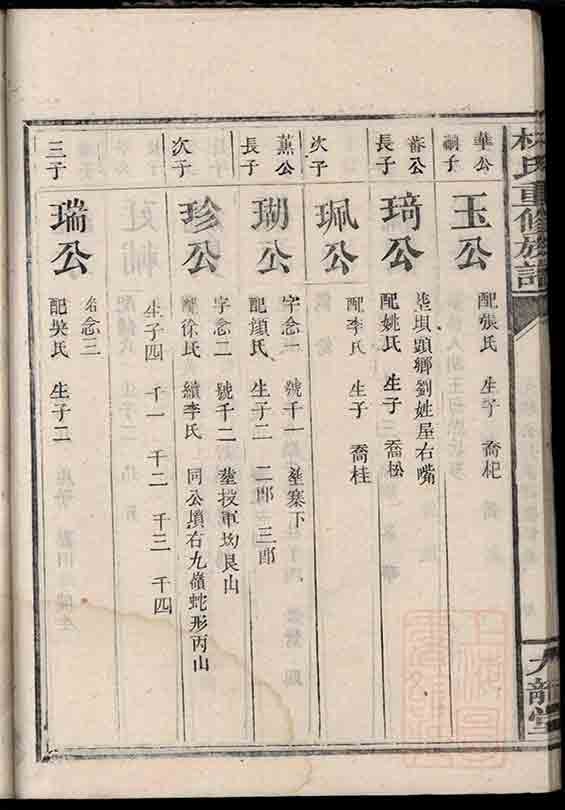 林氏重修族譜
九龍堂
華公
嗣子
玉公
配張氏 生子 喬杞
蕃公
長子
琦公
塟垻頭鄉劉姓屋右嘴
配姚氏 生子 喬松
次子
珮公
配李氏 生子 喬桂
薫公
長子
瑚公
字念一 號千一 塟寨下
配顔氏 生子二 二郎 三郎
次子
珍公
字念二 號千二 塟投軍坳艮山
配徐氏 續李氏 同公墳右九嶺蛇形丙山
生子四 千一 千二 千三 千四
三子
瑞公
名念三
配吳氏 生子二